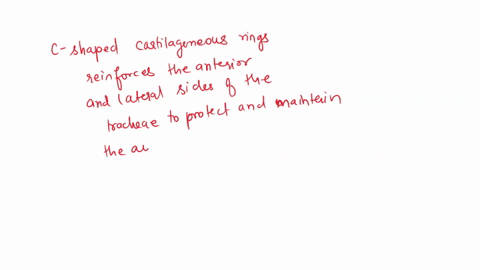 C-shaped cartilageneous rings
reinforces the anterior
and lateral sides of the
tracheae to protect and maintein
the au